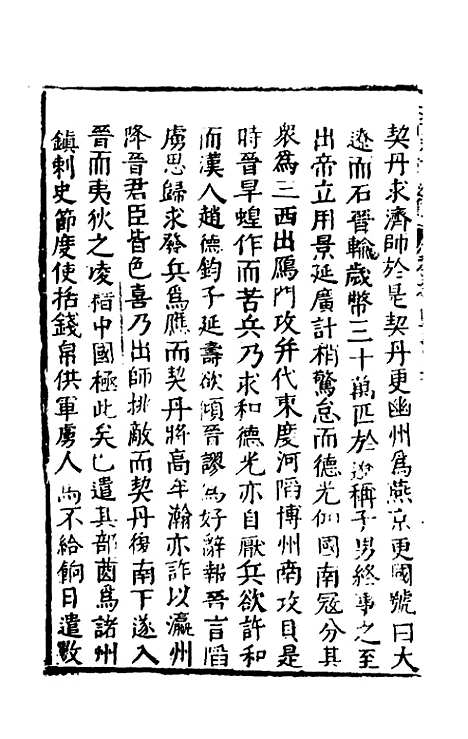 契丹求濟師於是契丹更幽州爲燕京更國號曰大
遼而石晉輸歲幣三十萬匹於遼稱子男終事之至
出帝立用景延廣計稍驁怠而德光傾國南冦分其
衆為三西出鴈門攻幷代東度河陷博州南攻貝是
時晉旱蝗作而苦兵乃求和德光亦自厭兵欲許和
而漢人趙德鈞子延壽欲傾晉謬爲好辭報晉言陷
虜思歸求發兵爲應而契丹將高牟瀚亦詐以瀛州
降晉君臣皆色喜乃出師挑敵而契丹復南下遂入
晉而夷狄之凌稽中國極此矣已遣其部酋爲諸州
鎮刺史節度使括錢帛供軍虜人馬不給餉日遣數